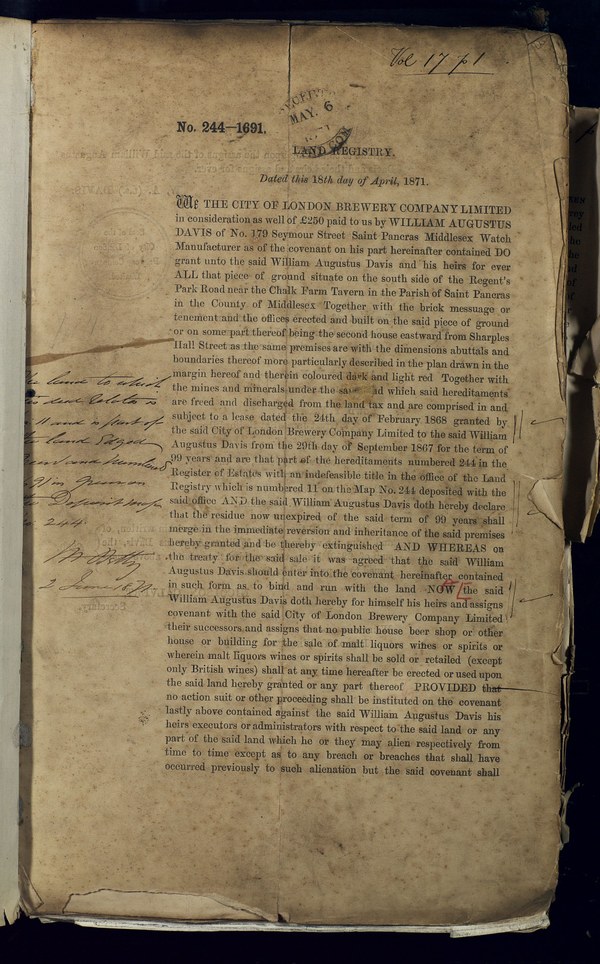 Vol 17 p 1
MAY. 6
No. 244—1691.
LAND REGISTRY.
Dated this 18th day of April, 1871.
WE THE CITY OF LONDON BREWERY COMPANY LIMITED
in consideration as well of £250 paid to us by WILLIAM AUGUSTUS
DAVIS of No. 179 Seymour Street Saint Pancras Middlesex Watch
Manufacturer as of the covenant on his part hereinafter contained DO
grant unto the said William Augustus Davis and his heirs for ever
ALL that piece of ground situate on the south side of the Regent's
Park Road near the Chalk Farm Tavern in the Parish of Saint Pancras
in the County of Middlesex Together with the brick message or
tenement and the offices erected and built on the said piece of ground
or on some part thereof being the second house eastward from Sharples
Hall Street as the same premises are with the dimensions abuttals and
boundaries thereof more particularly described in the plan drawn in the
margin hereof and therein coloured dark and light red Together with
the mines and minerals under the which said hereditaments
are freed and discharged from the land tax and are comprised in and
subject to a lease dated the 24th day of February 1868 granted by
the said City of London Brewery Company Limited to the said William
Augustus Davis from the 29th day of September 1867 for the term of
99 years and are that part of the hereditaments numbered 244 in the
Register of Estates with an indefeasible title in the office of the Land
Registry which is numbered 11 on the Map No. 244 deposited with the
said office AND the said William Augustus Davis doth hereby declare
that the residue now unexpired of the said term of 99 years shall
merge in the immediate reversion and inheritance of the said premises
hereby granted and be thereby extinguished AND WHEREAS on
the treaty for the said sale it was agreed that the said William
Augustus Davis should enter into the covenant hereinafter contained
in such form as to bind and run with the land NOW the said
William Augustus Davis doth hereby for himself his heirs and assigns
covenant with the said City of London Brewery Company Limited
their successors and assigns that no public house beer shop or other
house or building for the sale of malt liquors wines or spirits or
wherein malt liquors wines or spirits shall be sold or retailed (except
only British wines) shall at any time hereafter be erected or used upon
the said land hereby granted or any part thereof PROVIDED that
no action suit or other proceeding shall be instituted on the covenant
lastly above contained against the said William Augustus Davis his
heirs executors or administrators with respect to the said land or any
part of the said land which he or they may alien respectively from
time to time except as to any breach or breaches that shall have
occurred previously to such alienation but the said covenant shall
land to which
said Estate is
11 and is part of
land Edged
and numbered
91 in green on
Deposit map
244
2 June 1871